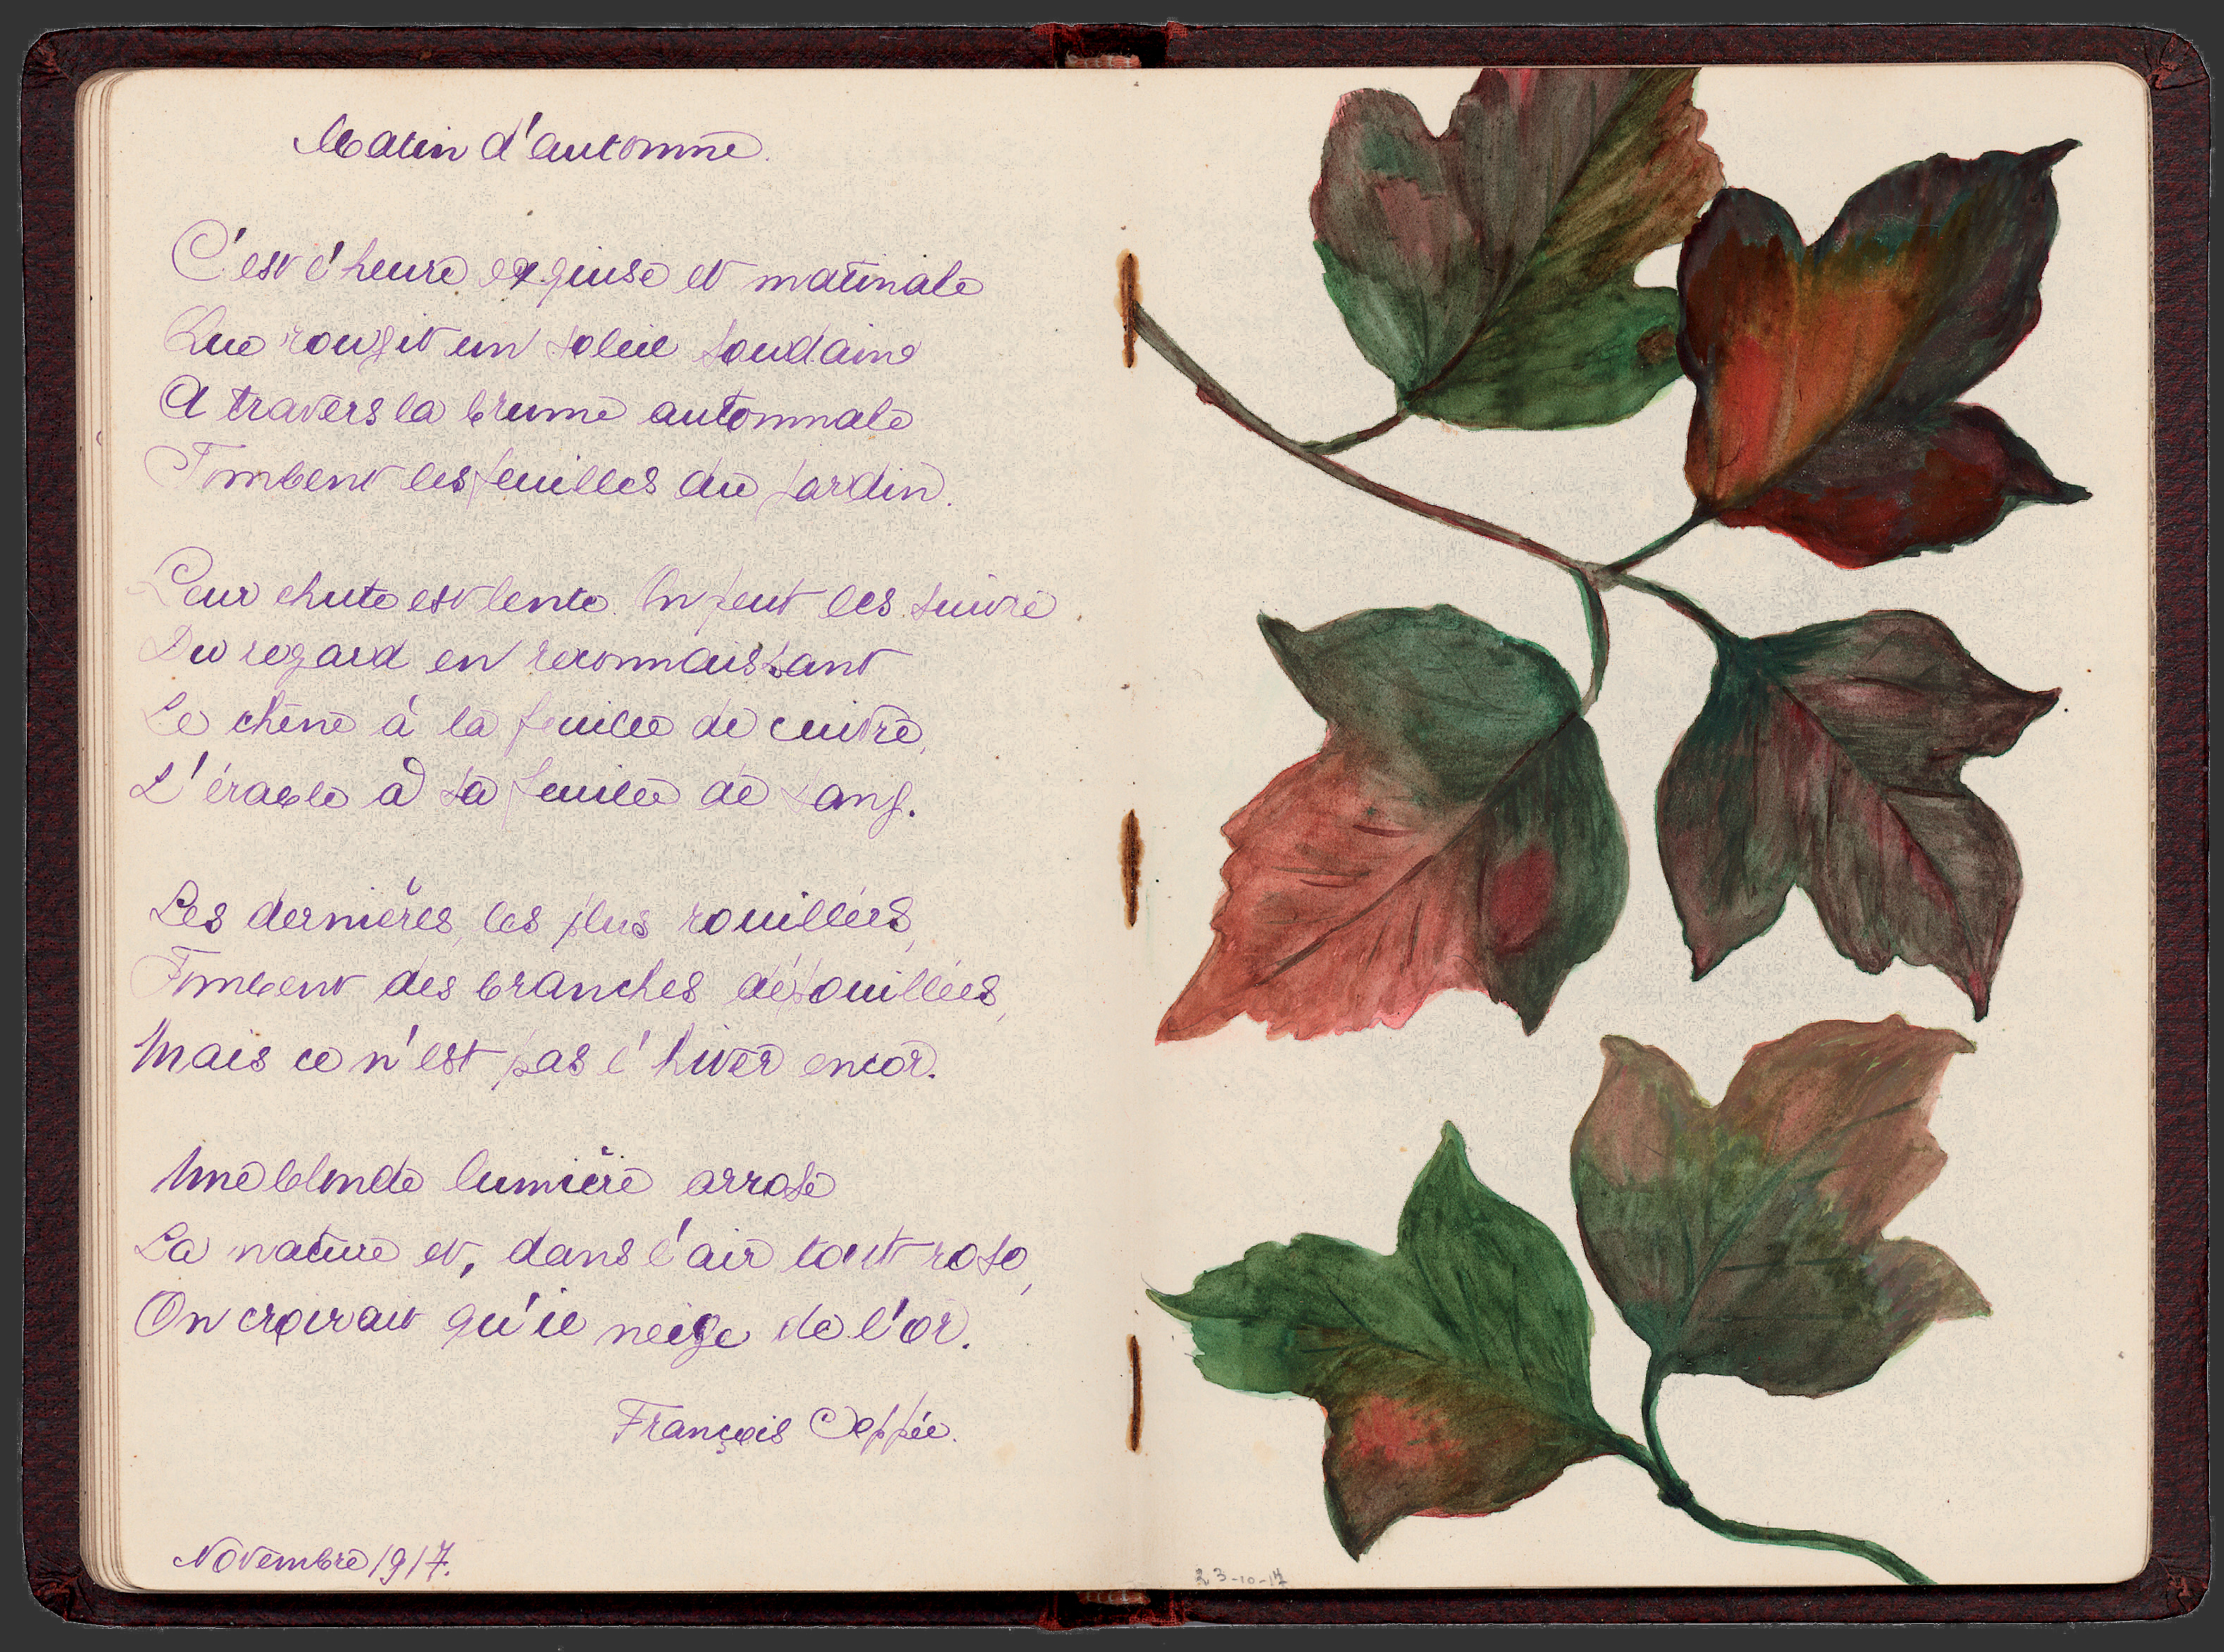 Matin d'automne.
C'est l'heure exquise et matinale
Que rougit un soleil soudain
A travers la brume automnale
Tombent les feuilles du jardin.
Leur chute est lente. On peut les suivre
Du regard en reconnaissant
Le chêne à la feuille de cuivre,
L'érable à sa feuille de sang.
Les dernières, les plus rouillées,
Tombent des branches dépouillées,
Mais ce n'est pas l'hiver encor.
Une blonde lumière arrose
La nature et, dans l'air tout rose,
On croirait qu'il neige de l'or.
François Coppée.
Novembre 1917.
23-10-17